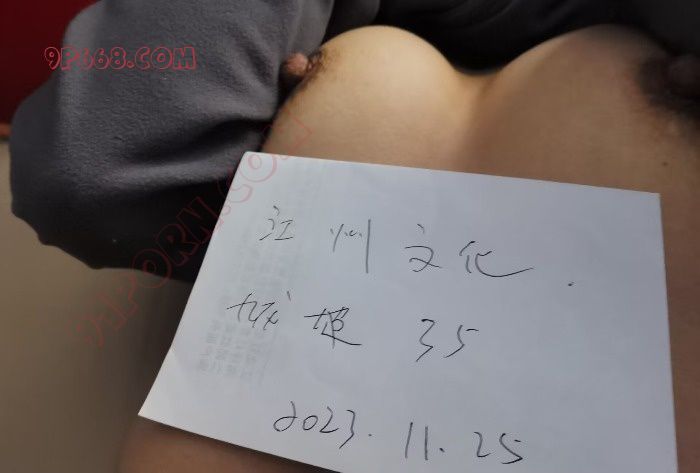 9P668.COM
91PORN.COM
江州文化.
35
2023.11.25